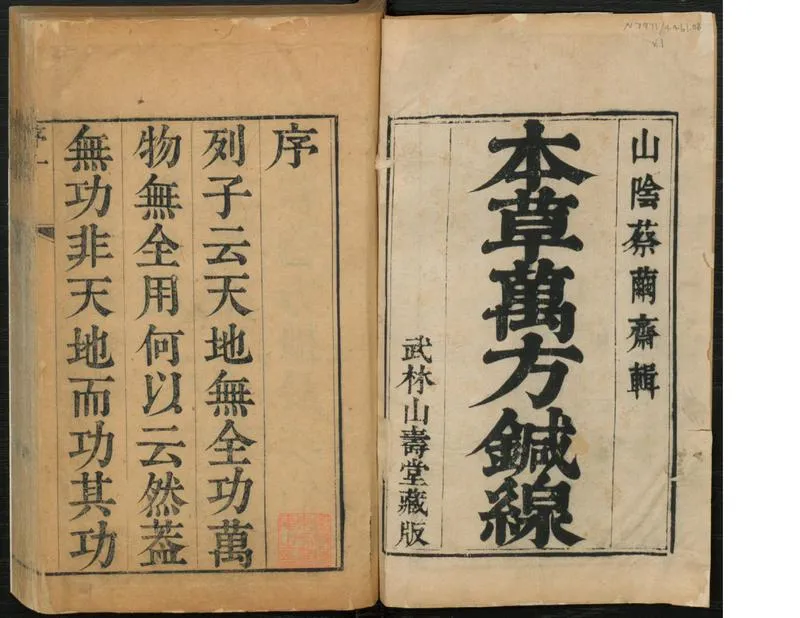 山陰蔡繭齋輯
本草萬方鍼線
武林山壽堂藏版
序
列子云天地無全功萬
物無全用何以云然蓋
無功非天地而功其功
序一